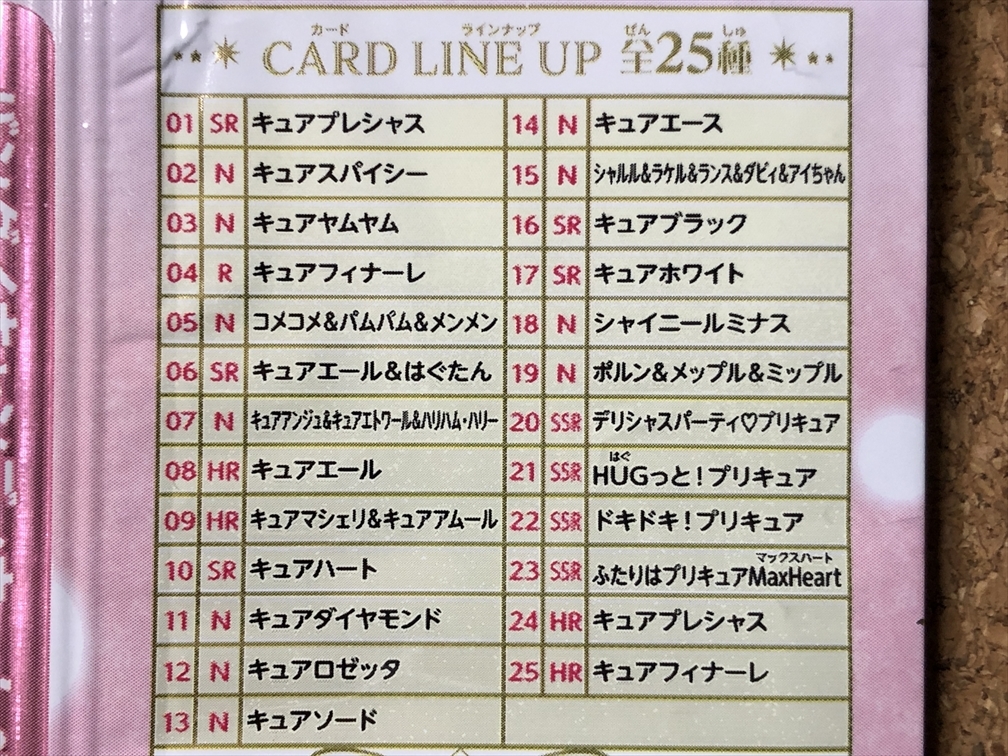 カード ラインナップ ぜん しゅ
CARD LINE UP 全25種
01 SR キュアプレシャス
02 N キュアスパイシー
03 N キュアヤムヤム
04 R キュアフィナーレ
05 N コメコメ&パムパム&メンメン
06 SR キュアエール&はぐたん
07 N キュアアンジュ&キュアエトワール&ハリハム・ハリー
08 HR キュアエール
09 HR キュアマシェリ&キュアアムール
10 SR キュアハート
11 N キュアダイヤモンド
12 N キュアロゼッタ
13 N キュアソード
14 N キュアエース
15 N シャルル&ラケル&ランス&ダビィ&アイちゃん
16 SR キュアブラック
17 SR キュアホワイト
18 N シャイニールミナス
19 N ポルン&メップル&ミップル
20 SSR デリシャスパーティ♡プリキュア
はぐ
21 SSR HUGっと!プリキュア
22 SSR ドキドキ!プリキュア
マックスハート
23 SSR ふたりはプリキュアMaxHeart
24 HR キュアプレシャス
25 HR キュアフィナーレ